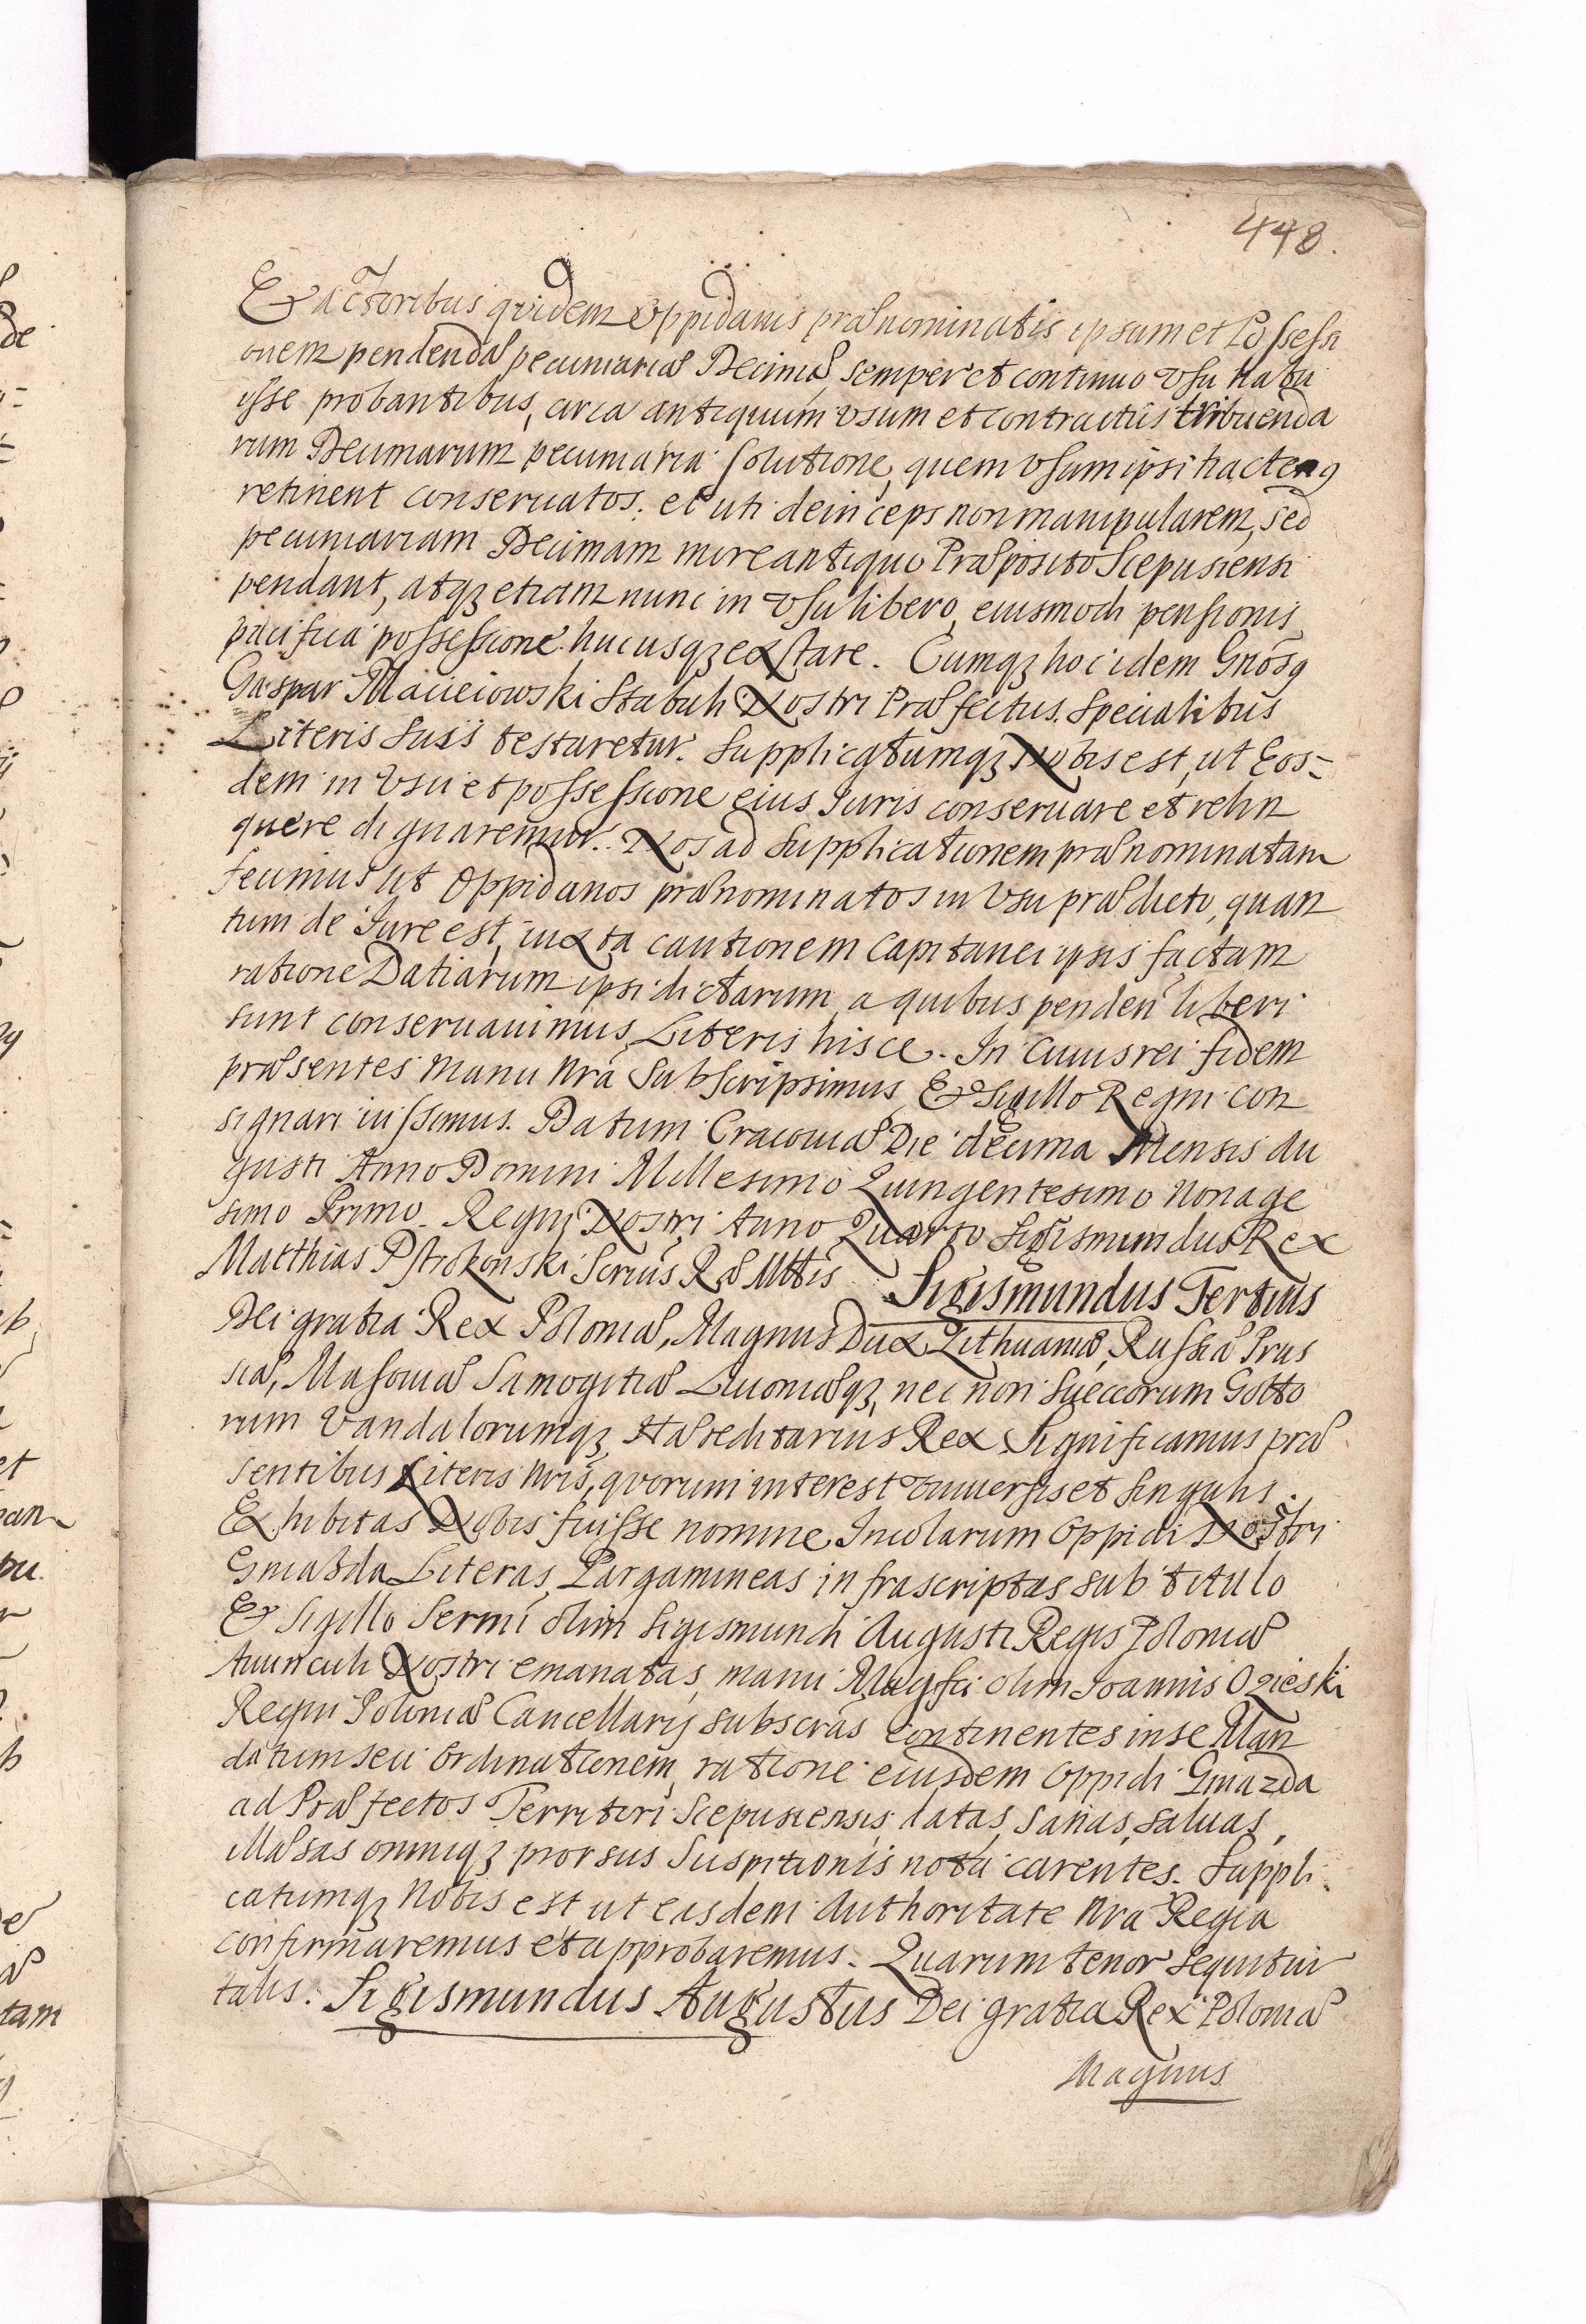 448.
Exactoribus quidem Oppidanis prænominatis ipsumet Possessi
onem pendendæ pecuniariæ Decimæ, semper et continuo Vsu habu
isse probantibus, circa antiquum Vsum et contractus tribuenda
rum Decimarum pecuniaria solutione, quem Vsum ipsi hacten9
retinent conseruatos: et uti deinceps non manipularem, sed
pecuniariam Decimam more antiquo Præposito Scepusiensi
pendant, atqz etiam nunc in Vsu libero, eiusmodi pensionis
pacifica possessione hucusqz exstare. Cumqz hoc idem Gnõs9
Gaspar Macieiowski Stabuli Nostri Præfectus. Specialibus
Literis suis testaretur. Supplicatumqz Nobis est, ut Eos=
dem in Vsu et possessione eius Iuris conseruare et relin
quere dignaremur. Nos ad Supplicationem prænominatam
fecimus ut Oppidanos prænominatos in Vsu prædicto, quan
tum de Iure est, iuxta cautionem Capitanei ipsis factam
ratione Datiarum ipsi dictarum, a quibus penden liberi
sunt conseruauimus Literis hisce. In Cuius rei fidem
præsentes manu Nrã Subscripsimus, Et Sigillo Regni con
signari iussimus. Datum Cracouiæ Die decima Mensis Au
gusti Anno Domini Millesimo Quingentesimo Nonage
simo Primo. Regni Nostri Anno Quarto Sigismundus Rex
Matthias Pstrokonski Scrius Ræ Mttis Sigismundus Tertius
Dei gratia Rex Poloniæ, Magnus Dux Lithuaniæ, Russiæ Prus
siæ, Masouiæ Samogitiæ Liuoniæqz, nec non Suecorum Gotto
rum Vandalorumqz Hæreditarius Rex Significamus præ
sentibus Literis Nris, quorum interest Vniuersis et Singulis.
Exhibitas Nobis fuisse nomine Incolarum Oppidi Nostri
Gniazda Literas Pargamineas infrascriptas sub titulo
Et Sigillo Sermi olim Sigismundi Augusti Regis Poloniæ
Auunculi Nostri emanatas, manu Magfci olim Ioannis Ozieski
Regni Poloniæ Cancellarij subscrãs continentes in se Man
datum seu Ordinationem, ratione eiusdem Oppidi Gniazda
ad Præfectos Territorij Scepusiensis datas, sanas, saluas,
illæsas omniqz prorsus Suspitionis nota carentes. Suppli
catumqz Nobis est ut easdem Authoritate Nra Regia
confirmaremus et approbaremus. Quarum tenor sequitur
talis. Sigismundus Augustus Dei gratia Rex Poloniæ
Magnus